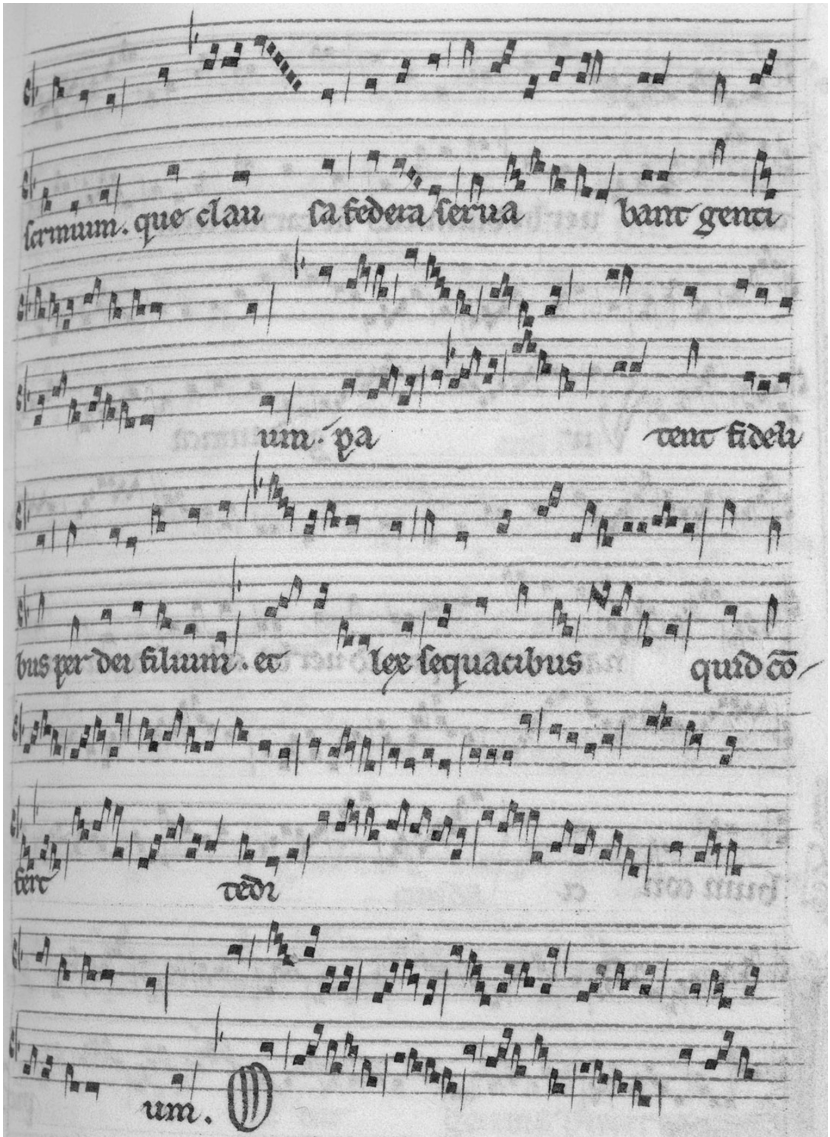 sermium. que clau sa federa serua bant genti
um. pa tent fideli
bus per dei filium. et lex sequacibus quid cō-
fert tedi
um.